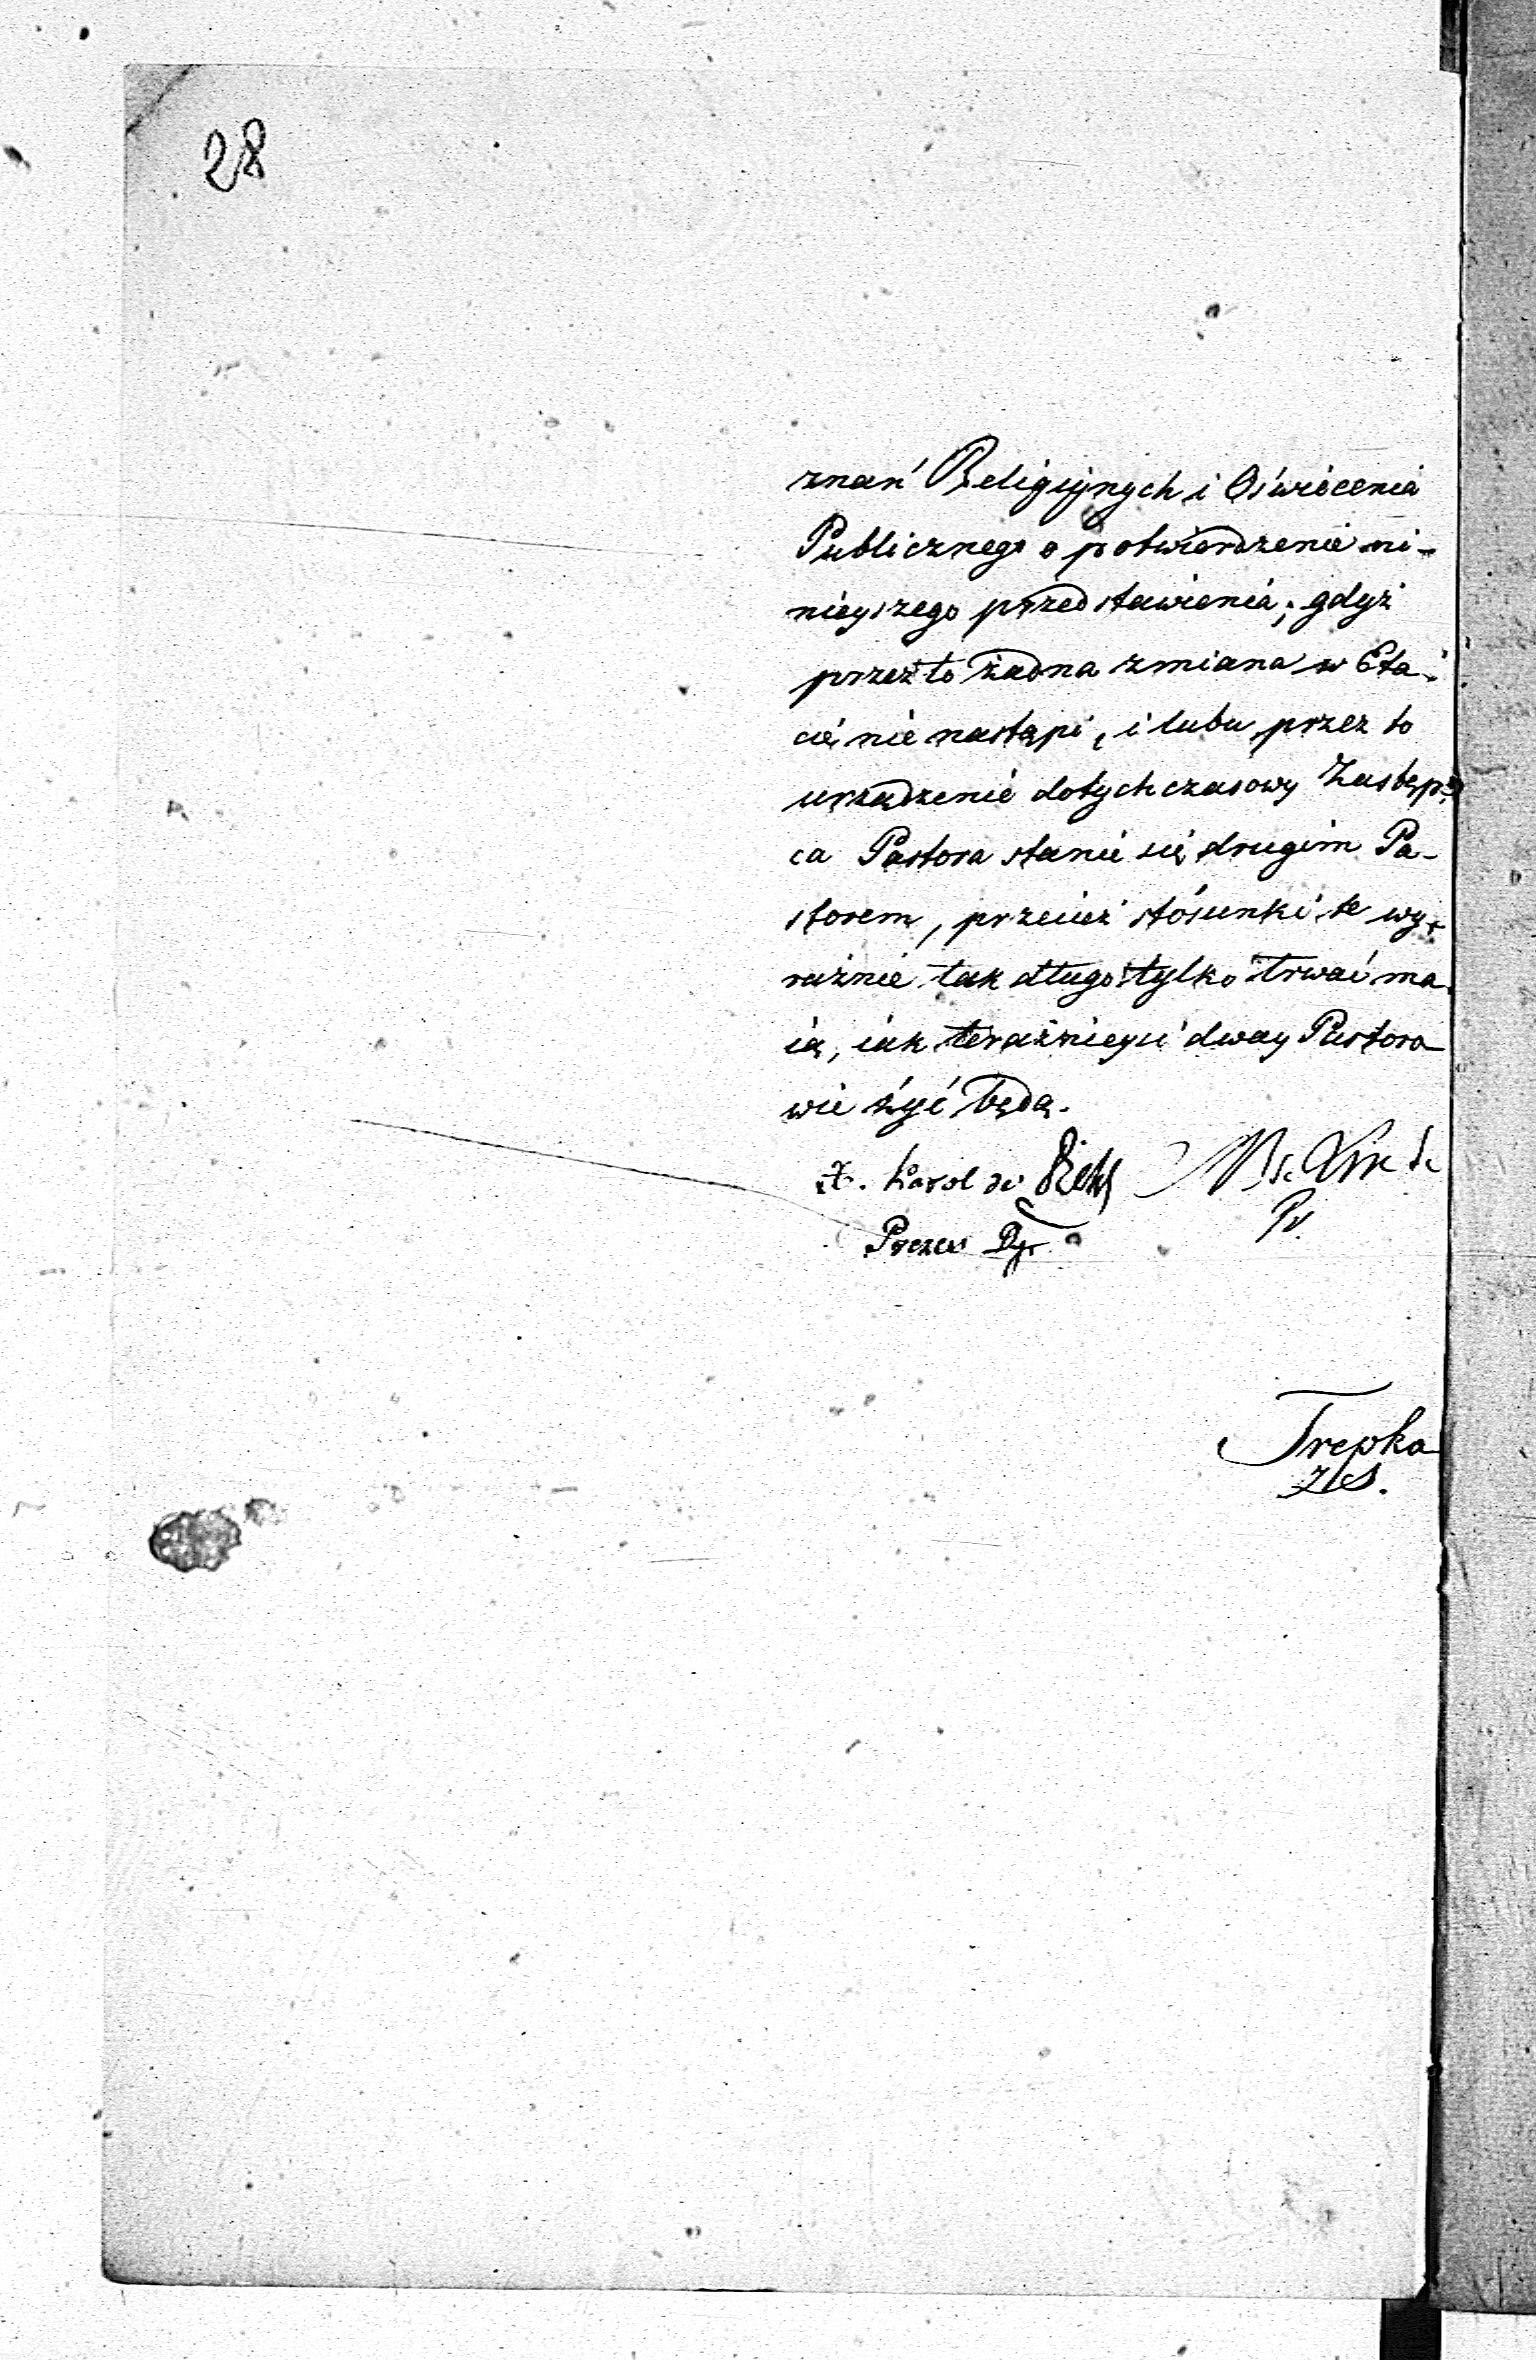 28
znań Religijnych i Oświécenia
Publicznego o potwierdzenie ni-
nieyszego przedstawienia; gdyż
przez to żadna zmiana w Eta-
cie nie nastąpi, i lubu przez to
urządzenie dotychczasowy Zastęp-
ca Pastora stanie się drugim Pa-
storem, przecież stósunki te wy-
raźnie tak długo tylko trwać ma-
ią, iak teraźnieysi dway Pastoro-
wie żyć będą.
Karol de
Prezes Dyr
Pr.
Trepka
ZS.